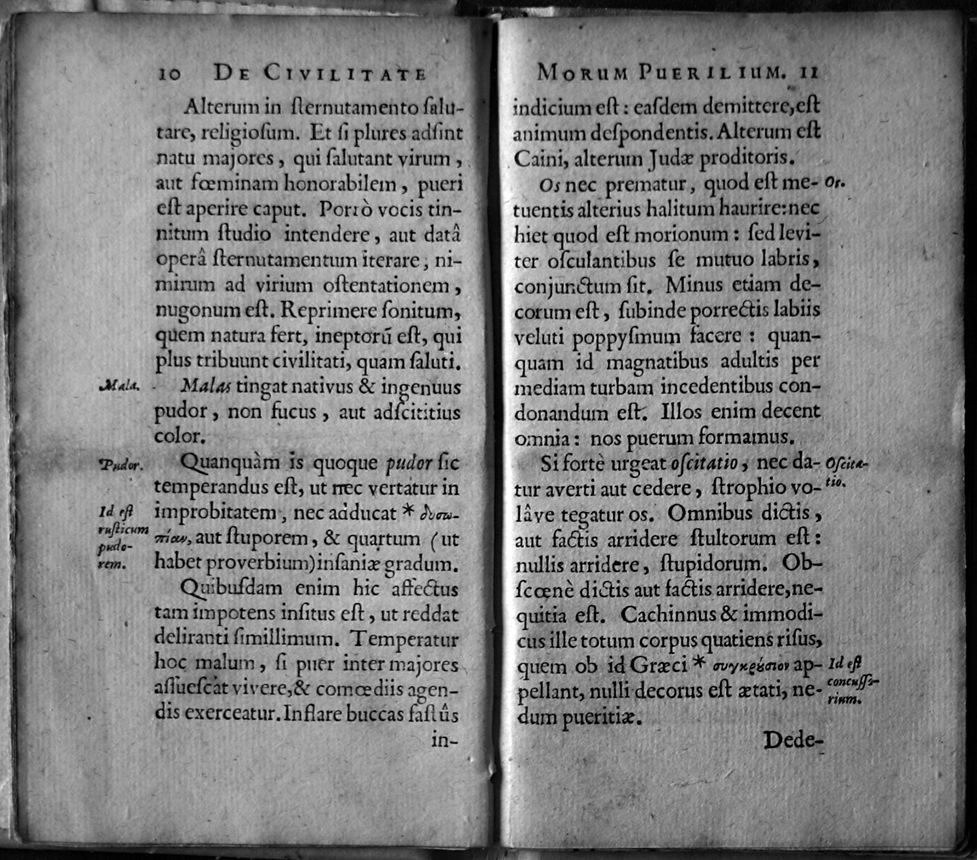 10 De Civilitate
Alterum in ſternutamento ſalu-
tare, religioſum. Et ſi plures adſint
natu majores, qui ſalutant virum,
aut fœminam honorabilem, pueri
eſt aperire caput. Porrò vocis tin-
nitum ſtudio intendere, aut datâ
operâ ſternutamentum iterare, ni-
mirum ad virium oſtentationem,
nugonum eſt. Reprimere ſonitum,
quem natura fert, ineptorũ eſt, qui
plus tribuunt civilitati, quam ſaluti.
Mala.
Malas tingat nativus & ingenuus
pudor, non fucus, aut adſcititius
color.
Pudor.
Quanquàm is quoque pudor ſic
temperandus eſt, ut nec vertatur in
improbitatem, nec adducat * δυσω-
πίαν, aut ſtuporem, & quartum (ut
habet proverbium) inſaniæ gradum.
Id eſt
ruſticum
pudo-
rem.
Quibuſdam enim hic affectus
tam impotens inſitus eſt, ut reddat
deliranti ſimillimum. Temperatur
hoc malum, ſi puer inter majores
aſſueſcat vivere, & comœdiis agen-
dis exerceatur. Inflare buccas faſtûs
in-
Morum Puerilium. 11
indicium eſt: eaſdem demittere, eſt
animum deſpondentis. Alterum eſt
Caini, alterum Judæ proditoris.
Os nec prematur, quod eſt me-
tuentis alterius halitum haurire: nec
hiet quod eſt morionum: ſed levi-
ter oſculantibus ſe mutuo labris,
conjunctum ſit. Minus etiam de-
corum eſt, ſubinde porrectis labiis
veluti poppyſmum facere: quan-
quam id magnatibus adultis per
mediam turbam incedentibus con-
donandum eſt. Illos enim decent
omnia: nos puerum formamus.
Os.
Si fortè urgeat oſcitatio, nec da-
tur averti aut cedere, ſtrophio vo-
lâve tegatur os. Omnibus dictis,
aut factis arridere ſtultorum eſt:
nullis arridere, ſtupidorum. Ob-
ſcœnè dictis aut factis arridere, ne-
quitia eſt. Cachinnus & immodi-
cus ille totum corpus quatiens riſus,
quem ob id Græci * συγκρούσιον ap-
pellant, nulli decorus eſt ætati, ne-
dum pueritiæ.
Oſcita-
tio.
Id eſt
concuſſo-
rium.
Dede-